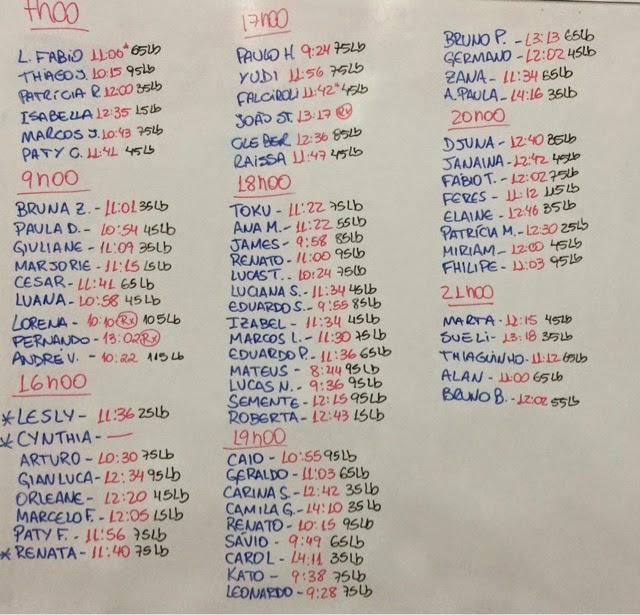 7h00
L. FABIO 11:06* 65Lb
THIAGO J. 10:15 95Lb
PATRÍCIA P. 12:00 35Lb
ISABELLA 12:35 15Lb
MARCOS J. 10:43 75Lb
PATY G. 11:41 45Lb
9h00
BRUNA Z. - 11:01 35Lb
PAULA D. - 10:54 45Lb
GIULIANE - 11:09 35Lb
MARJORIE - 11:15 15Lb
CESAR - 11:41 65Lb
LUANA - 10:58 45Lb
LORENA - 10:10 Rx 105Lb
FERNANDO - 13:02 Rx
ANDRÉ V. - 10:22 115Lb
16h00
*LESLY - 11:36 25Lb
*CYNTHIA - —
ARTURO - 10:30 75Lb
GIANLUCA - 12:34 95Lb
ORLEANE - 12:20 45Lb
MARCELO F. - 12:05 15Lb
PATY F. - 11:56 75Lb
*RENATA - 11:40 75Lb
17h00
PAULO H. 9:24 75Lb
YUDI - 11:56 75Lb
FALCIROLI 11:42* 45Lb
JOÃO ST. 13:17 Rx
CLEBER 12:36 85Lb
RAISSA - 11:47 45Lb
18h00
TOKU - 11:22 75Lb
ANA M. - 11:22 55Lb
JAMES - 9:58 85Lb
RENATO - 11:00 95Lb
LUCAS T. . 10:24 75Lb
LUCIANA S. - 11:34 45Lb
EDUARDO S. - 9:55 85Lb
IZABEL - 11:34 45Lb
MARCOS L. - 11:30 75Lb
EDUARDO P. - 11:36 65Lb
MATEUS - 8:44 95Lb
LUCAS N. - 9:36 95Lb
SEMENTE - 12:15 95Lb
ROBERTA - 12:43 15Lb
19h00
CAIO - 10:55 95Lb
GERALDO - 11:03 65Lb
CARINA S. - 12:42 35Lb
CAMILA G. - 14:10 35Lb
RENATO - 10:15 95Lb
SAVIO - 9:49 65Lb
CAROL - 14:11 35Lb
KATO - 9:38 75Lb
LEONARDO - 9:28 75Lb
BRUNO P. - 13:13 65Lb
GERMANO - 12:02 45Lb
ZANA - 11:34 65Lb
A. PAULA - 14:16 35Lb
20h00
DJUNA - 12:40 35Lb
JANAINA - 12:42 45Lb
FABIO T. - 12:02 75Lb
FERES - 11:12 115Lb
ELAINE - 12:46 35Lb
PATRÍCIA M. - 12:30 25Lb
MIRIAM - 12:00 45Lb
FHILIPE - 11:03 95Lb
21h00
MARTA - 12:15 45Lb
SUELI - 13:18 35Lb
THIAGUINHO - 11:12 65Lb
ALAN - 11:00 65Lb
BRUNO B. - 12:02 55Lb